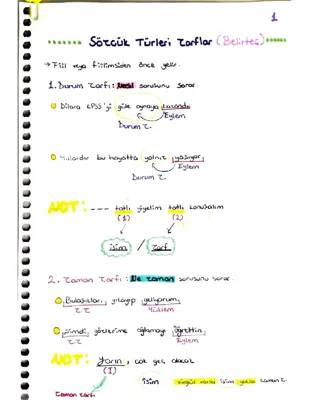 1
Sözcük Türleri Zarflar (Belirteç)
→ Fiil veya fiilimsiden önce gelir.
1. Durum Zarfı: Nasıl sorusunu sorar.
Dilara KPSS'yi güle oynaya kazandı
Eylem
Durum Z.
bu hayatta yalnız yaşıyor.
Eylem
Durum Z.
NOT: --- tatlı yiyelim tatlı konuşalım
(1) (2)
isim / Zarf
2. Zaman Zarfı: Ne zaman sorusunu sorar.
yıkayıp geliyorum,
Z.Z Eylem
Şimdi, gözlerime ağlamayı öğrettin,
Z.Z Eylem
NOT: Yarın, çok geç olacak
(1)
Zaman Zarfı
isim virgül varsa isim yoksa zaman Z.